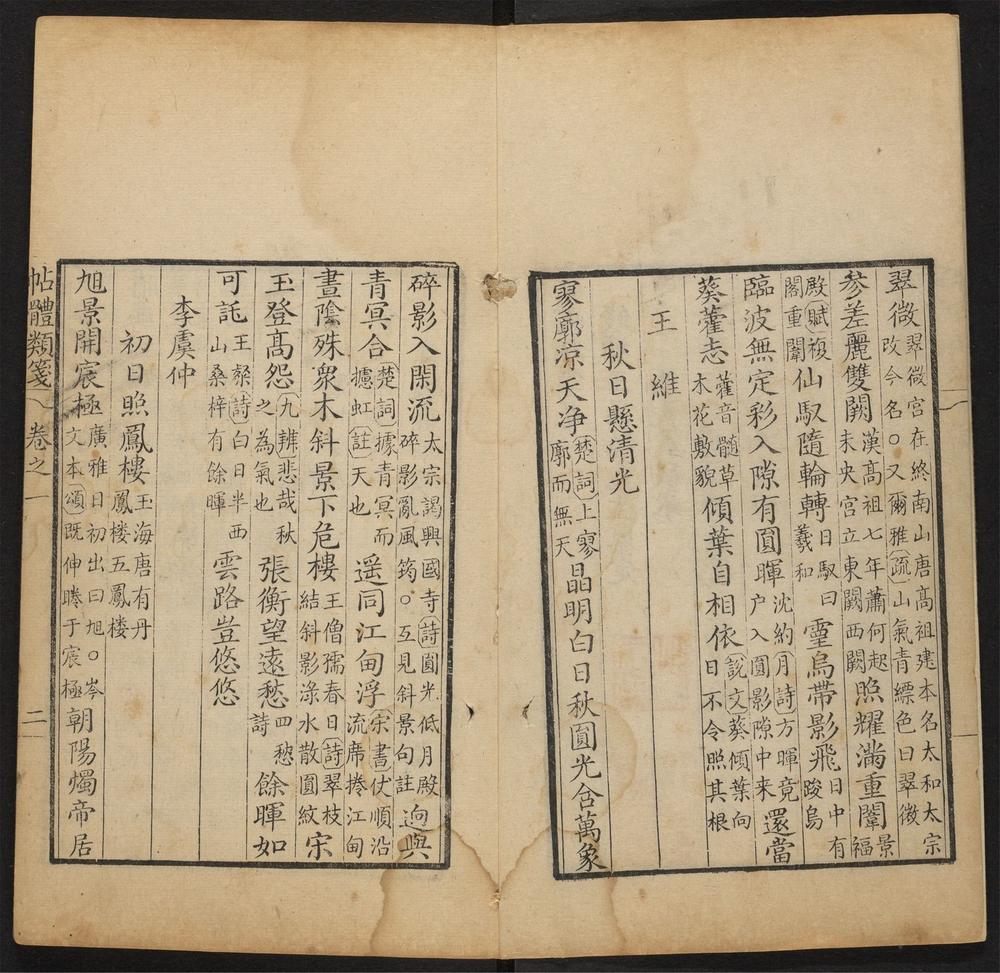 翠微翠微宮在終南山唐高祖建本名太和太宗改今名○又爾雅疏山氣青縹色曰翠微
參差麗雙闕漢高祖七年蕭何起未央宮立東闕西闕照耀滿重闈景福
殿賦複閣重闈仙馭隨輪轉日馭曰羲和靈烏帶影飛日中有踆烏
臨波無定彩入隙有圓暉沈約月詩方暉竟户入圓影隙中来還當
葵藿志藿音髓草木花敷貌傾葉自相依說文葵傾葉向日不令照其根
王維
秋日懸清光
寥廓凉天净楚詞上寥廓而無天晶明白日秋圓光含萬象
碎影入閑流太宗謁興國寺詩圓光低月殿碎影亂風筠○互見斜景句註逈與
青冥合楚詞據青冥而攄虹註天也遥同江甸浮宋書伏順沿流席捲江甸
晝陰殊衆木斜景下危樓王僧孺春日詩翠枝結斜影渌水散圓紋宋
玉登高怨九辨悲哉秋之為氣也張衡望遠愁四愁詩餘暉如
可託王粲詩白日半西山桑梓有餘暉雲路豈悠悠
李虞仲
初日照鳳樓玉海唐有丹鳳樓五鳳樓
旭景開宸極廣雅日初出曰旭○岑文本頌既伸睠于宸極朝陽燭帝居
帖體類箋 卷之一 二